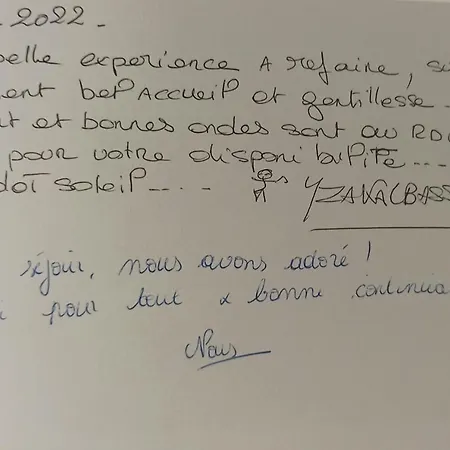 2022.
belle experience A refaire, su
ent bel Accueil et gentillesse.
t et bonnes ondes sont au RD
pour votre disponibilité....
dot soleil....
séjour, nous avons adoré !
pour tout & bonne continua
Nous